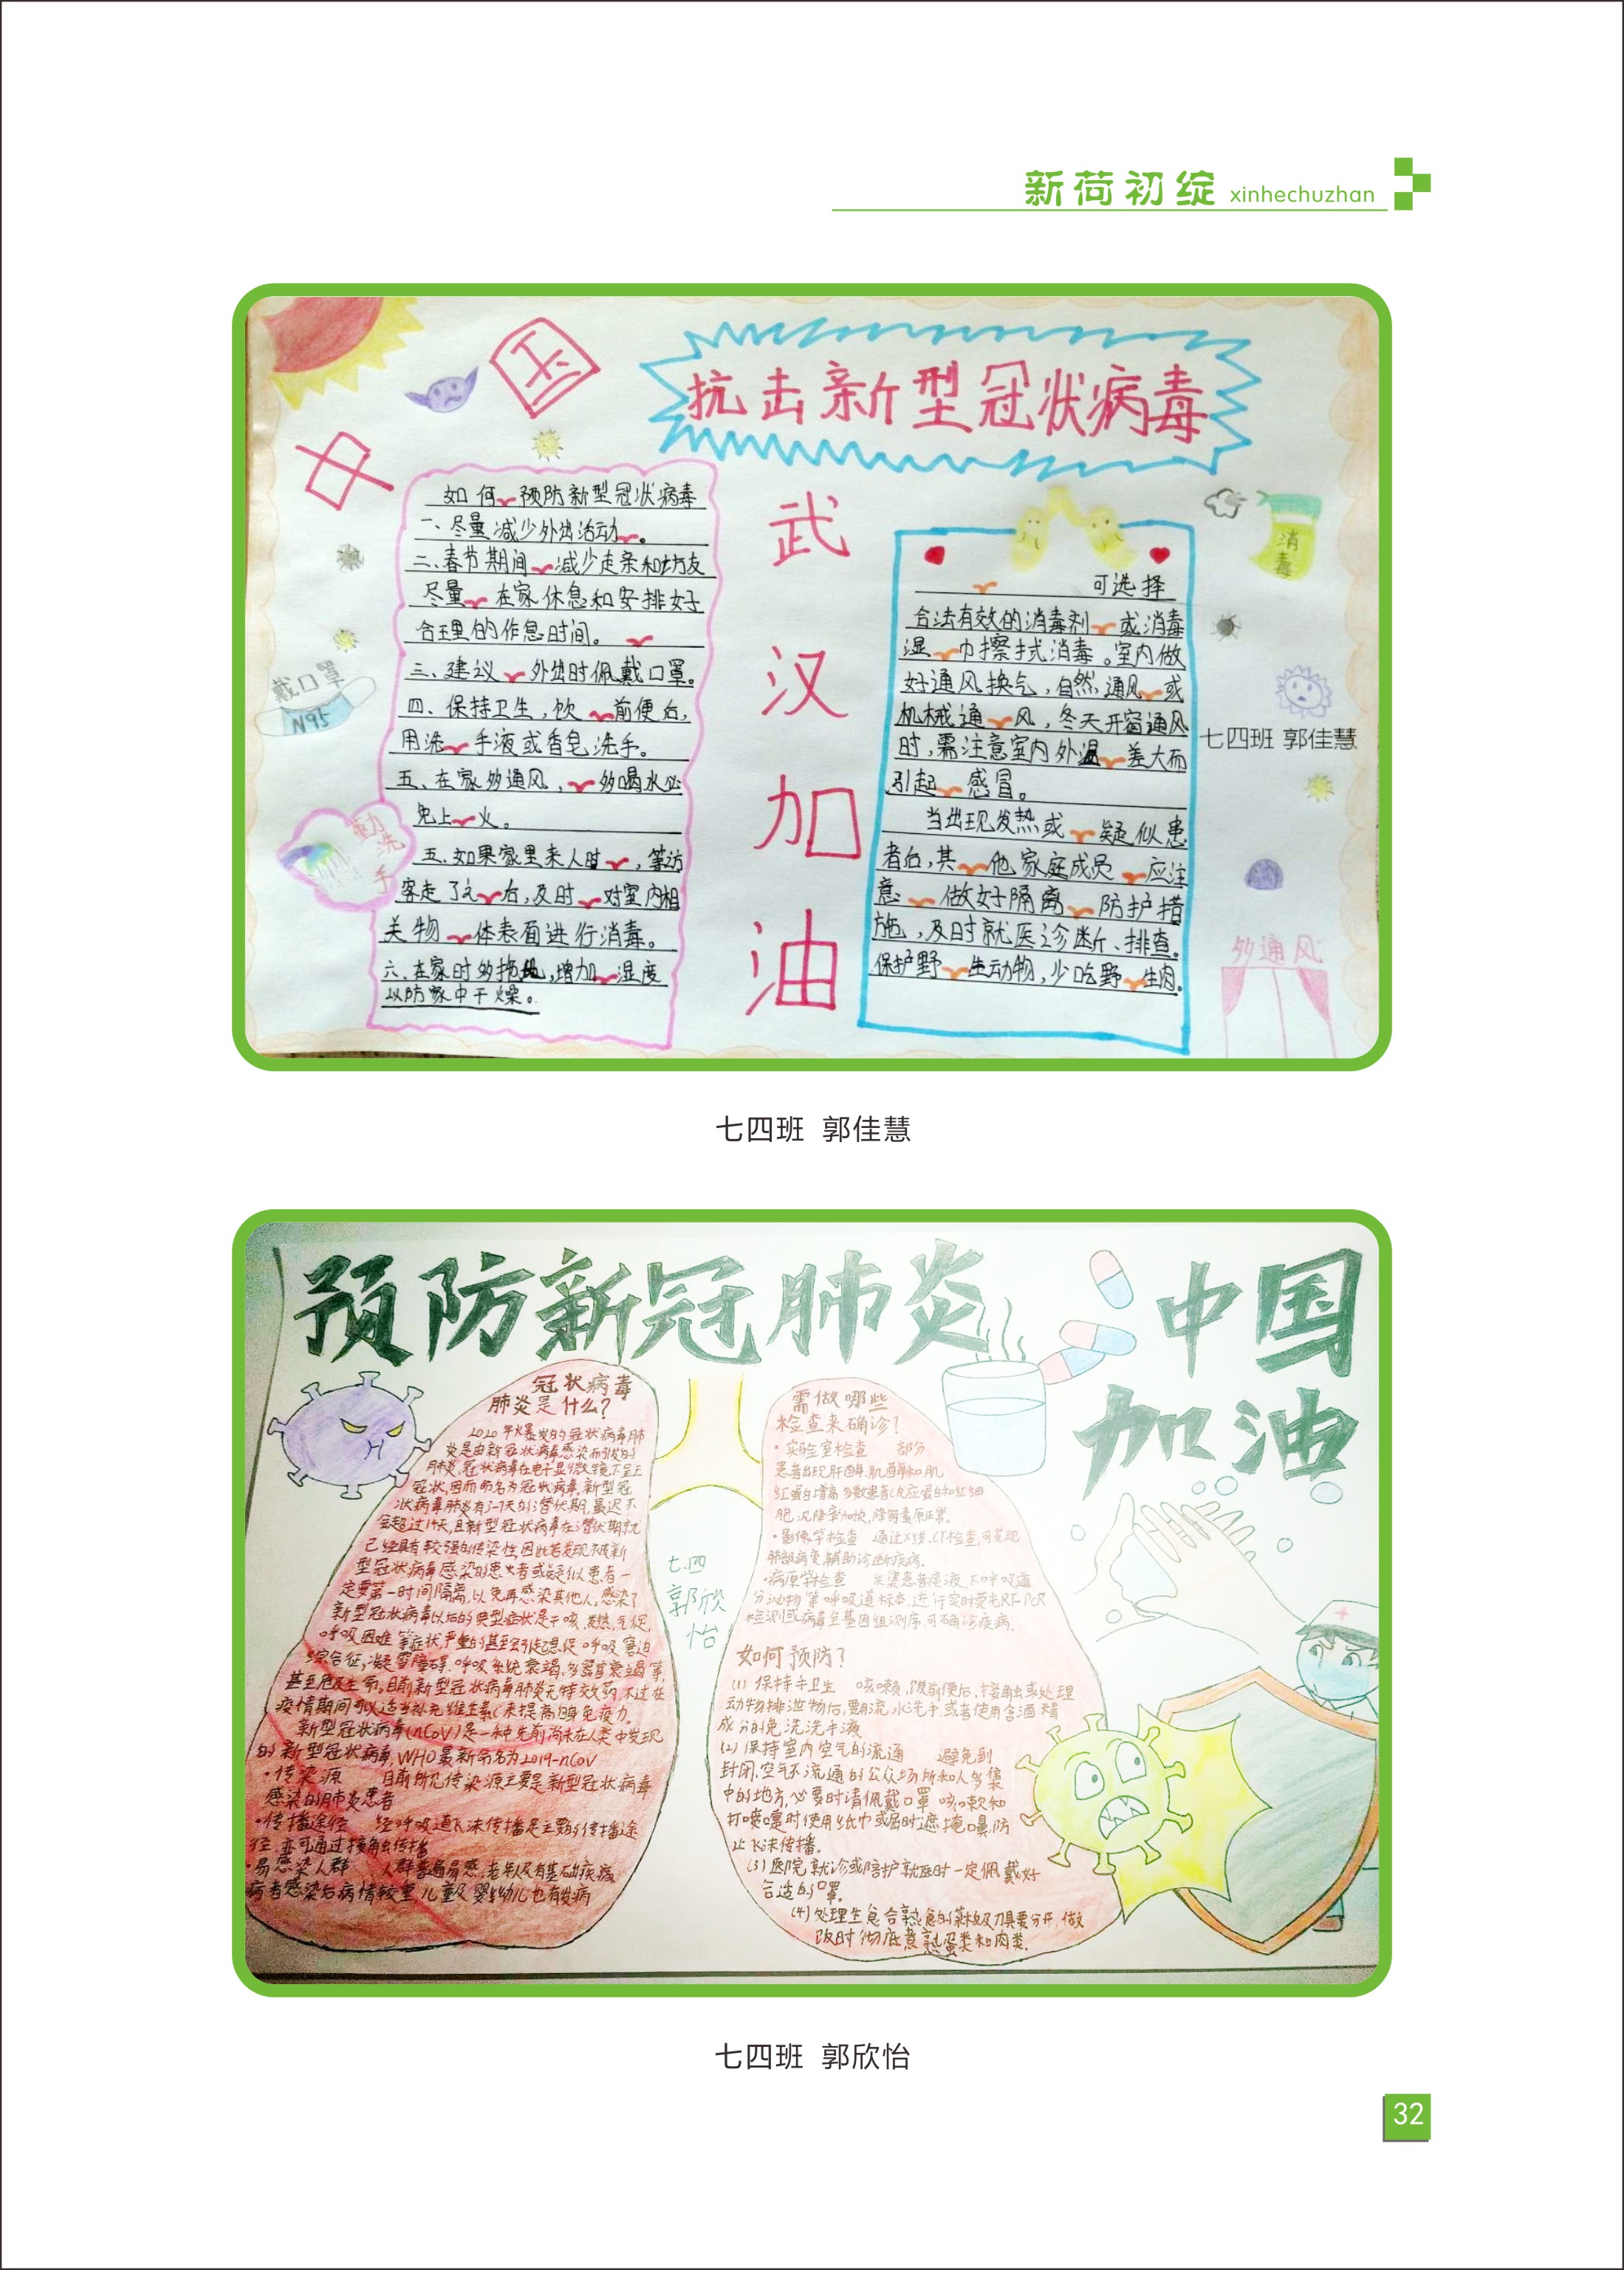 新荷初绽 xinhechuzhan
中国
抗击新型冠状病毒
如何预防新型冠状病毒
一、尽量减少外出活动。
二、春节期间减少走亲和访友
尽量在家休息和安排好
合理的作息时间。
三、建议外出时佩戴口罩。
四、保持卫生,饮前便后,
用洗手液或香皂洗手。
五、在家多通风,多喝水必
免上火。
五、如果家里来人时,等访
客走了之后,及时对室内相
关物体表面进行消毒。
六、在家时多拖地,增加湿度
以防家中干燥。
戴口罩
N95
勤洗手
武汉加油
可选择
合法有效的消毒剂或消毒
湿巾擦拭消毒。室内做
好通风换气,自然通风或
机械通风,冬天开窗通风
时,需注意室内外温差大而
引起感冒。
当出现发热或疑似患
者后,其他家庭成员应注
意做好隔离防护措
施,及时就医诊断、排查。
保护野生动物,少吃野生肉。
消毒
七四班 郭佳慧
多通风
七四班 郭佳慧
预防新冠肺炎
中国
加油
冠状病毒
肺炎是什么?
2020年火爆发的冠状病毒肺
炎是由新冠状病毒感染而引发的
肺炎,冠状病毒在电子显微镜下呈王
冠状,因而命名为冠状病毒,新型冠
状病毒肺炎有3-7天的潜伏期,最迟不
会超过14天,且新型冠状病毒在潜伏期就
已经具有较强的传染性,因此若发现
型冠状病毒感染的患者或疑似患者一
定要第一时间隔离,以免再感染其他人,感染了
新型冠状病毒以后的典型症状是干咳、发热、气促,
呼吸困难等症状,严重的甚至引起急促呼吸窘迫
综合征,凝血障碍,呼吸系统衰竭,多器官衰竭等,
甚至危及生命,目前新型冠状病毒肺炎无特效药,不过在
疫情期间可以适当补充维生素C来提高自身免疫力。
新型冠状病毒(nCoV)是一种先前尚未在人类中发现
的新型冠状病毒,WHO最新命名为2019-nCoV
·传染源 目前所见传染源主要是新型冠状病毒
感染的肺炎患者
·传播途径 经呼吸道飞沫传播是主要的传播途
径,亦可通过接触传播
·易感染人群 人群普遍易感,老年人及有基础疾病
病者感染后病情较重,儿童及婴幼儿也有发病
七.四
郭欣怡
需做哪些
检查来确诊?
·实验室检查 部分
患者出现肝酶、肌酶和肌
红蛋白增高,多数患者C反应蛋白和红细
胞沉降率加快,降钙素原正常。
·影像学检查 通过X线、CT检查,可发现
肺部病变,辅助诊断疾病。
·病原学检查 采集患者痰液、下呼吸道
分泌物等呼吸道标本,进行实时荧光RT-PCR
检测或病毒全基因组测序,可确诊疾病。
如何预防?
(1)保持手卫生 咳嗽、饭前便后、接触或处理
动物排泄物后,要用流水洗手,或者使用含酒精
成分的免洗洗手液
(2)保持室内空气的流通 避免到
封闭、空气不流通的公众场所和人多集
中的地方,必要时请佩戴口罩,咳嗽和
打喷嚏时使用纸巾或屈肘遮掩口鼻,防
止飞沫传播。
(3)医院就诊或陪护就医时一定佩戴好
合适的口罩。
(4)处理生食合熟食的菜板及刀具要分开,做
饭时彻底煮熟蛋类和肉类.
七四班 郭欣怡
32